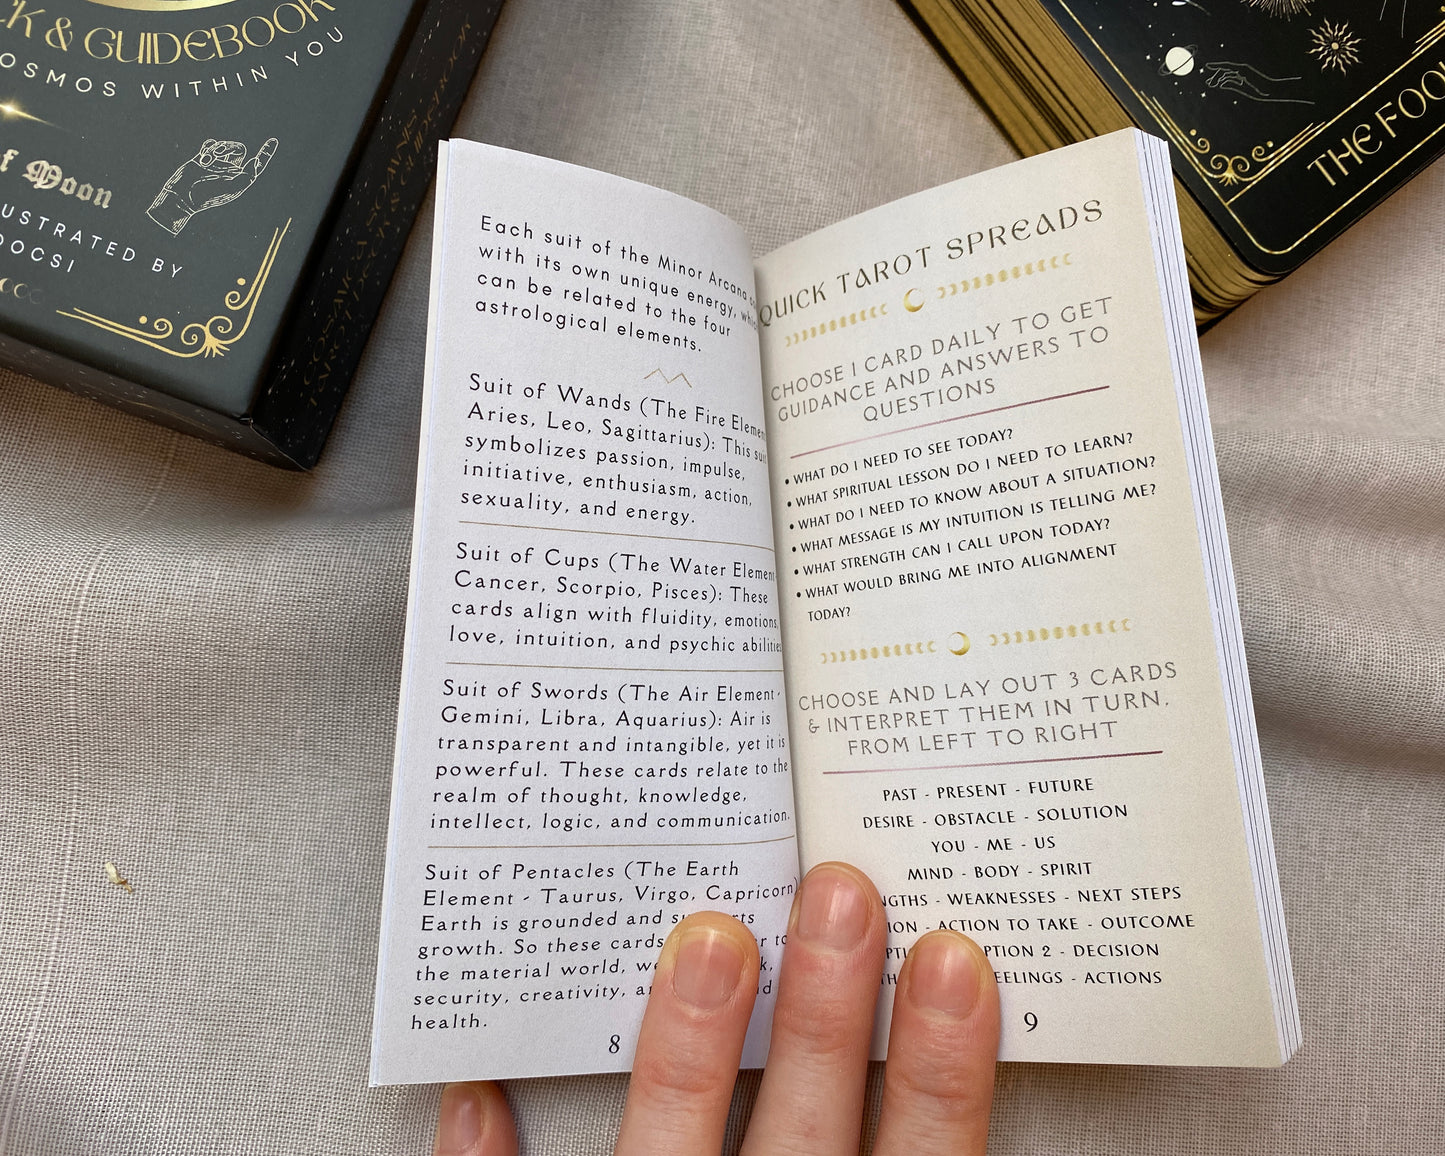 & GUIDEBOOK
COSMOS WITHIN YOU
of Moon
ILLUSTRATED BY
DOCSI
COSMICA SOANIS
TAROT DECK & GUIDEBOOK
THE FOOL
Each suit of the Minor Arcana
with its own unique energy,
can be related to the four
astrological elements.
Suit of Wands (The Fire Element
Aries, Leo, Sagittarius): This suit
symbolizes passion, impulse,
initiative, enthusiasm, action,
sexuality, and energy.
Suit of Cups (The Water Element
Cancer, Scorpio, Pisces): These
cards align with fluidity, emotions,
love, intuition, and psychic abilities
Suit of Swords (The Air Element -
Gemini, Libra, Aquarius): Air is
transparent and intangible, yet it is
powerful. These cards relate to the
realm of thought, knowledge,
intellect, logic, and communication.
Suit of Pentacles (The Earth
Element - Taurus, Virgo, Capricorn)
Earth is grounded and supports
growth. So these cards
the material world,
security, creativity,
health.
8
QUICK TAROT SPREADS
CHOOSE 1 CARD DAILY TO GET
GUIDANCE AND ANSWERS TO
QUESTIONS
• WHAT DO I NEED TO SEE TODAY?
• WHAT SPIRITUAL LESSON DO I NEED TO LEARN?
• WHAT DO I NEED TO KNOW ABOUT A SITUATION?
• WHAT MESSAGE IS MY INTUITION IS TELLING ME?
• WHAT STRENGTH CAN I CALL UPON TODAY?
• WHAT WOULD BRING ME INTO ALIGNMENT
TODAY?
CHOOSE AND LAY OUT 3 CARDS
& INTERPRET THEM IN TURN,
FROM LEFT TO RIGHT
PAST - PRESENT - FUTURE
DESIRE - OBSTACLE - SOLUTION
YOU - ME - US
MIND - BODY - SPIRIT
- WEAKNESSES - NEXT STEPS
- ACTION TO TAKE - OUTCOME
OPTION 2 - DECISION
FEELINGS - ACTIONS
9